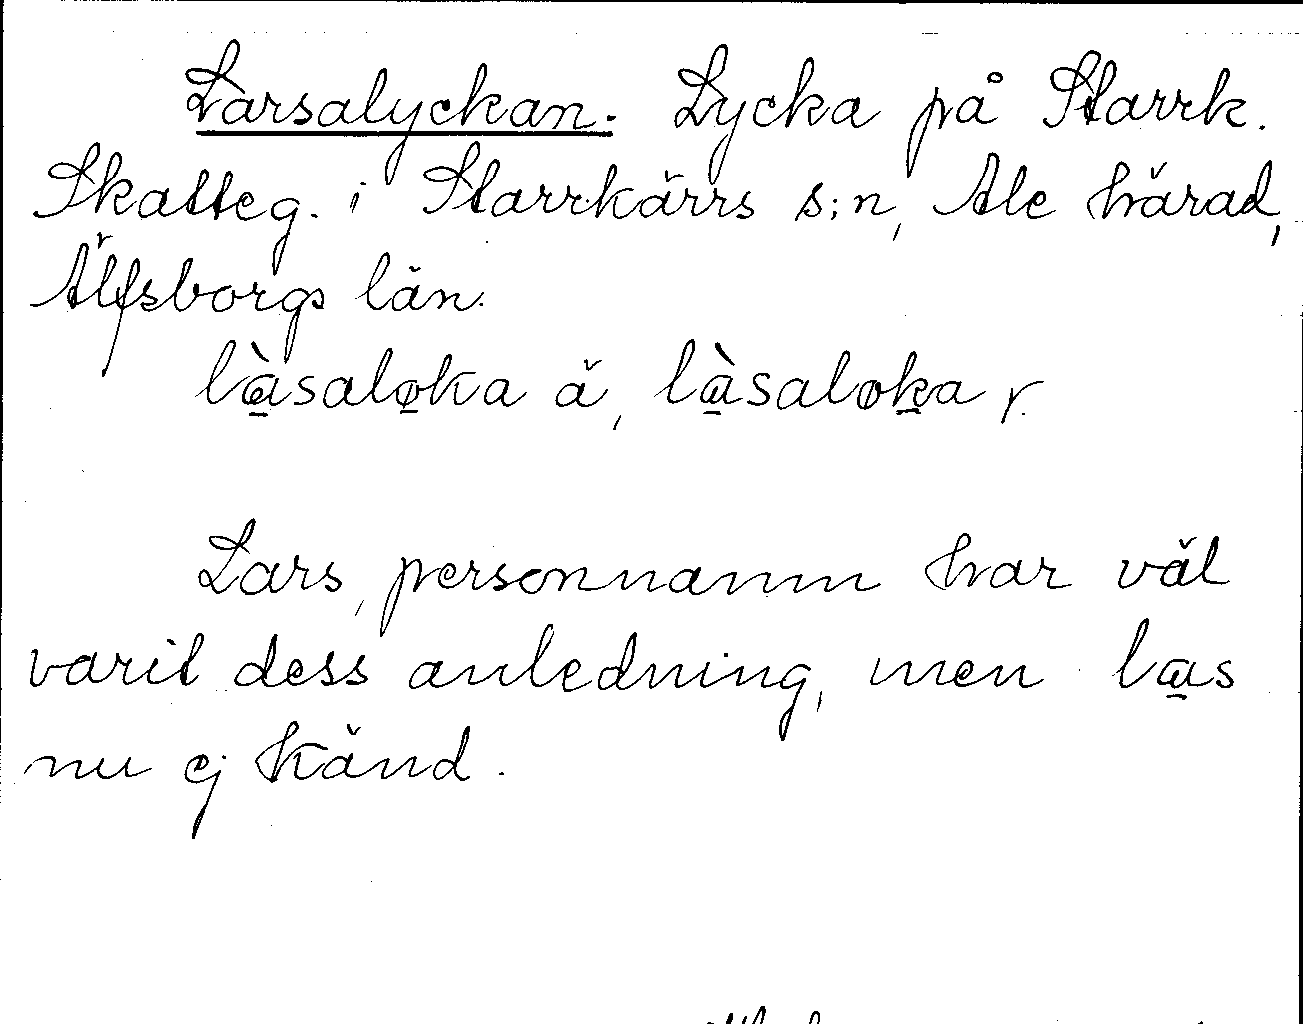 Larsalyckan. Lycka på Starrk.
Skatteg. i Starrkärrs s:n, Ale härad,
Älfsborgs län.
là̱salo̱ka ä, là̱saloḵa y.
Lars, personnamn har väl
varit dess anledning, men la̱s
nu ej känd.